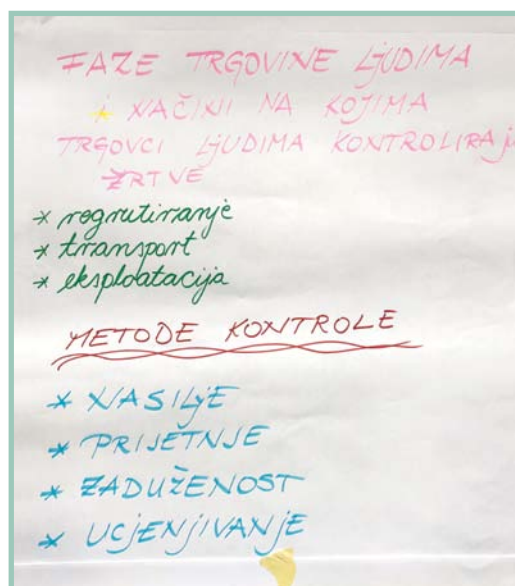 FAZE TRGOVINE LJUDIMA
I NAČINI NA KOJIMA
TRGOVCI LJUDIMA KONTROLIRAJU
ŽRTVE
* regrutiranje
* transport
* eksploatacija
METODE KONTROLE
* NASILJE
* PRIJETNJE
* ZADUŽENOST
* UCJENJIVANJE